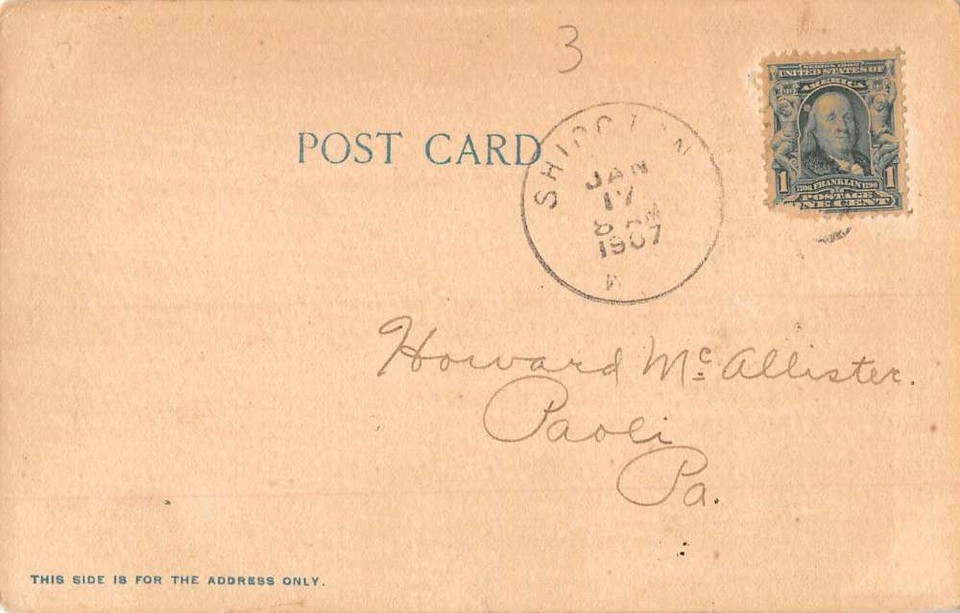 3
POST CARD
SERIES 1902
UNITED STATES OF
AMERICA
1 1
1706 FRANKLIN 1790
POSTAGE
ONE CENT
JAN
17
1907
Howard McAllister.
Paoli
Pa.
THIS SIDE IS FOR THE ADDRESS ONLY.